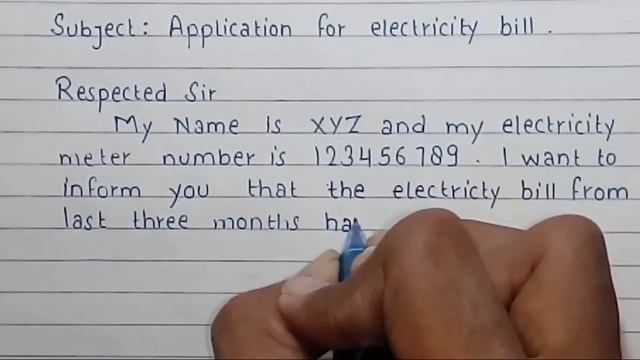 Subject: Application for electricity bill.
Respected Sir
My Name is XYZ and my electricity
meter number is 123456789. I want to
inform you that the electricty bill from
last three months ha